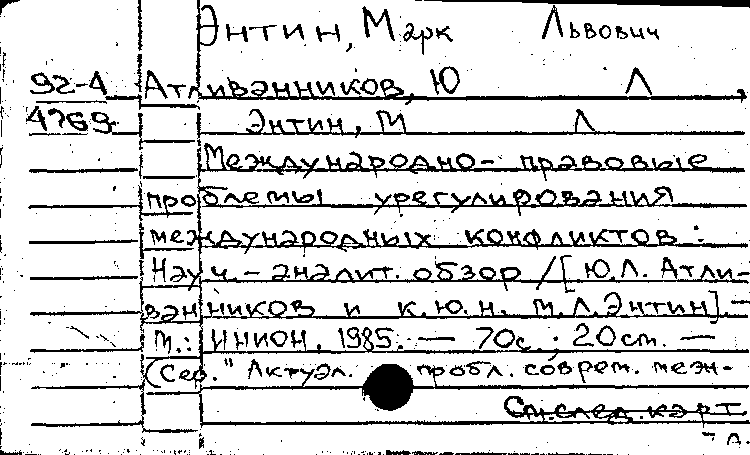 Энтин, Марк Львович
92-4 Атливанников, Ю Л,
4769 Энтин, М Л
Международно- правовые
проблемы урегулирования
международных конфликтов :
Науч.- аналит. обзор / [Ю.Л. Атли-
ванников и к.ю.н. М.Л. Энтин]. –
М.: ИНИОН, 1985. — 70с. ; 20см. —
(Сер. "Актуал. пробл. соврем. меж-
См. след. карт